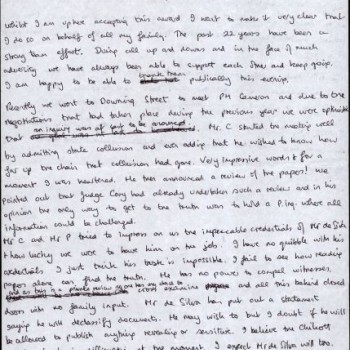 Whilst I am up here accepting this award I want to make it very clear that
I do so on behalf of all my family. The past 22 years have been a
strong team effort. During all ups and downs and in the face of much
adversity we have always been able to support each other and keep going.
I am happy to be able to publically this evening.
Recently we went to Downing Street to meet PM Cameron and due to the
negotiations that had taken place during the previous year we were optimistic
that an inquiry was to be announced. Mr. C started the meeting well
by admitting state collusion and even adding that he wished to know how
far up the chain that collusion had gone. Very impressive words & for a
moment I was heartened. He then announced a review of the papers! We
pointed out that Judge Cory had already undertaken such a review and in his
opinion the only way to get to the truth was to hold a P.inq. where all
information could be challenged.
Mr C and Mr P tried to impress on us the impeccable credentials of Mr de Silva
& how lucky we were to have him on the job. I have no quibble with his
credentials I just think his task is impossible. I fail to see how reading
papers alone can find the truth. He has no power to compel witnesses,
cross examine and all this behind closed
doors with no family input. Mr de Silva has put out a statement
saying he will declassify documents. He may wish to but I doubt if he will
be allowed to publish anything revealing or sensitive. I believe the Chilcott
at the moment. I expect Mr de Silva will too.